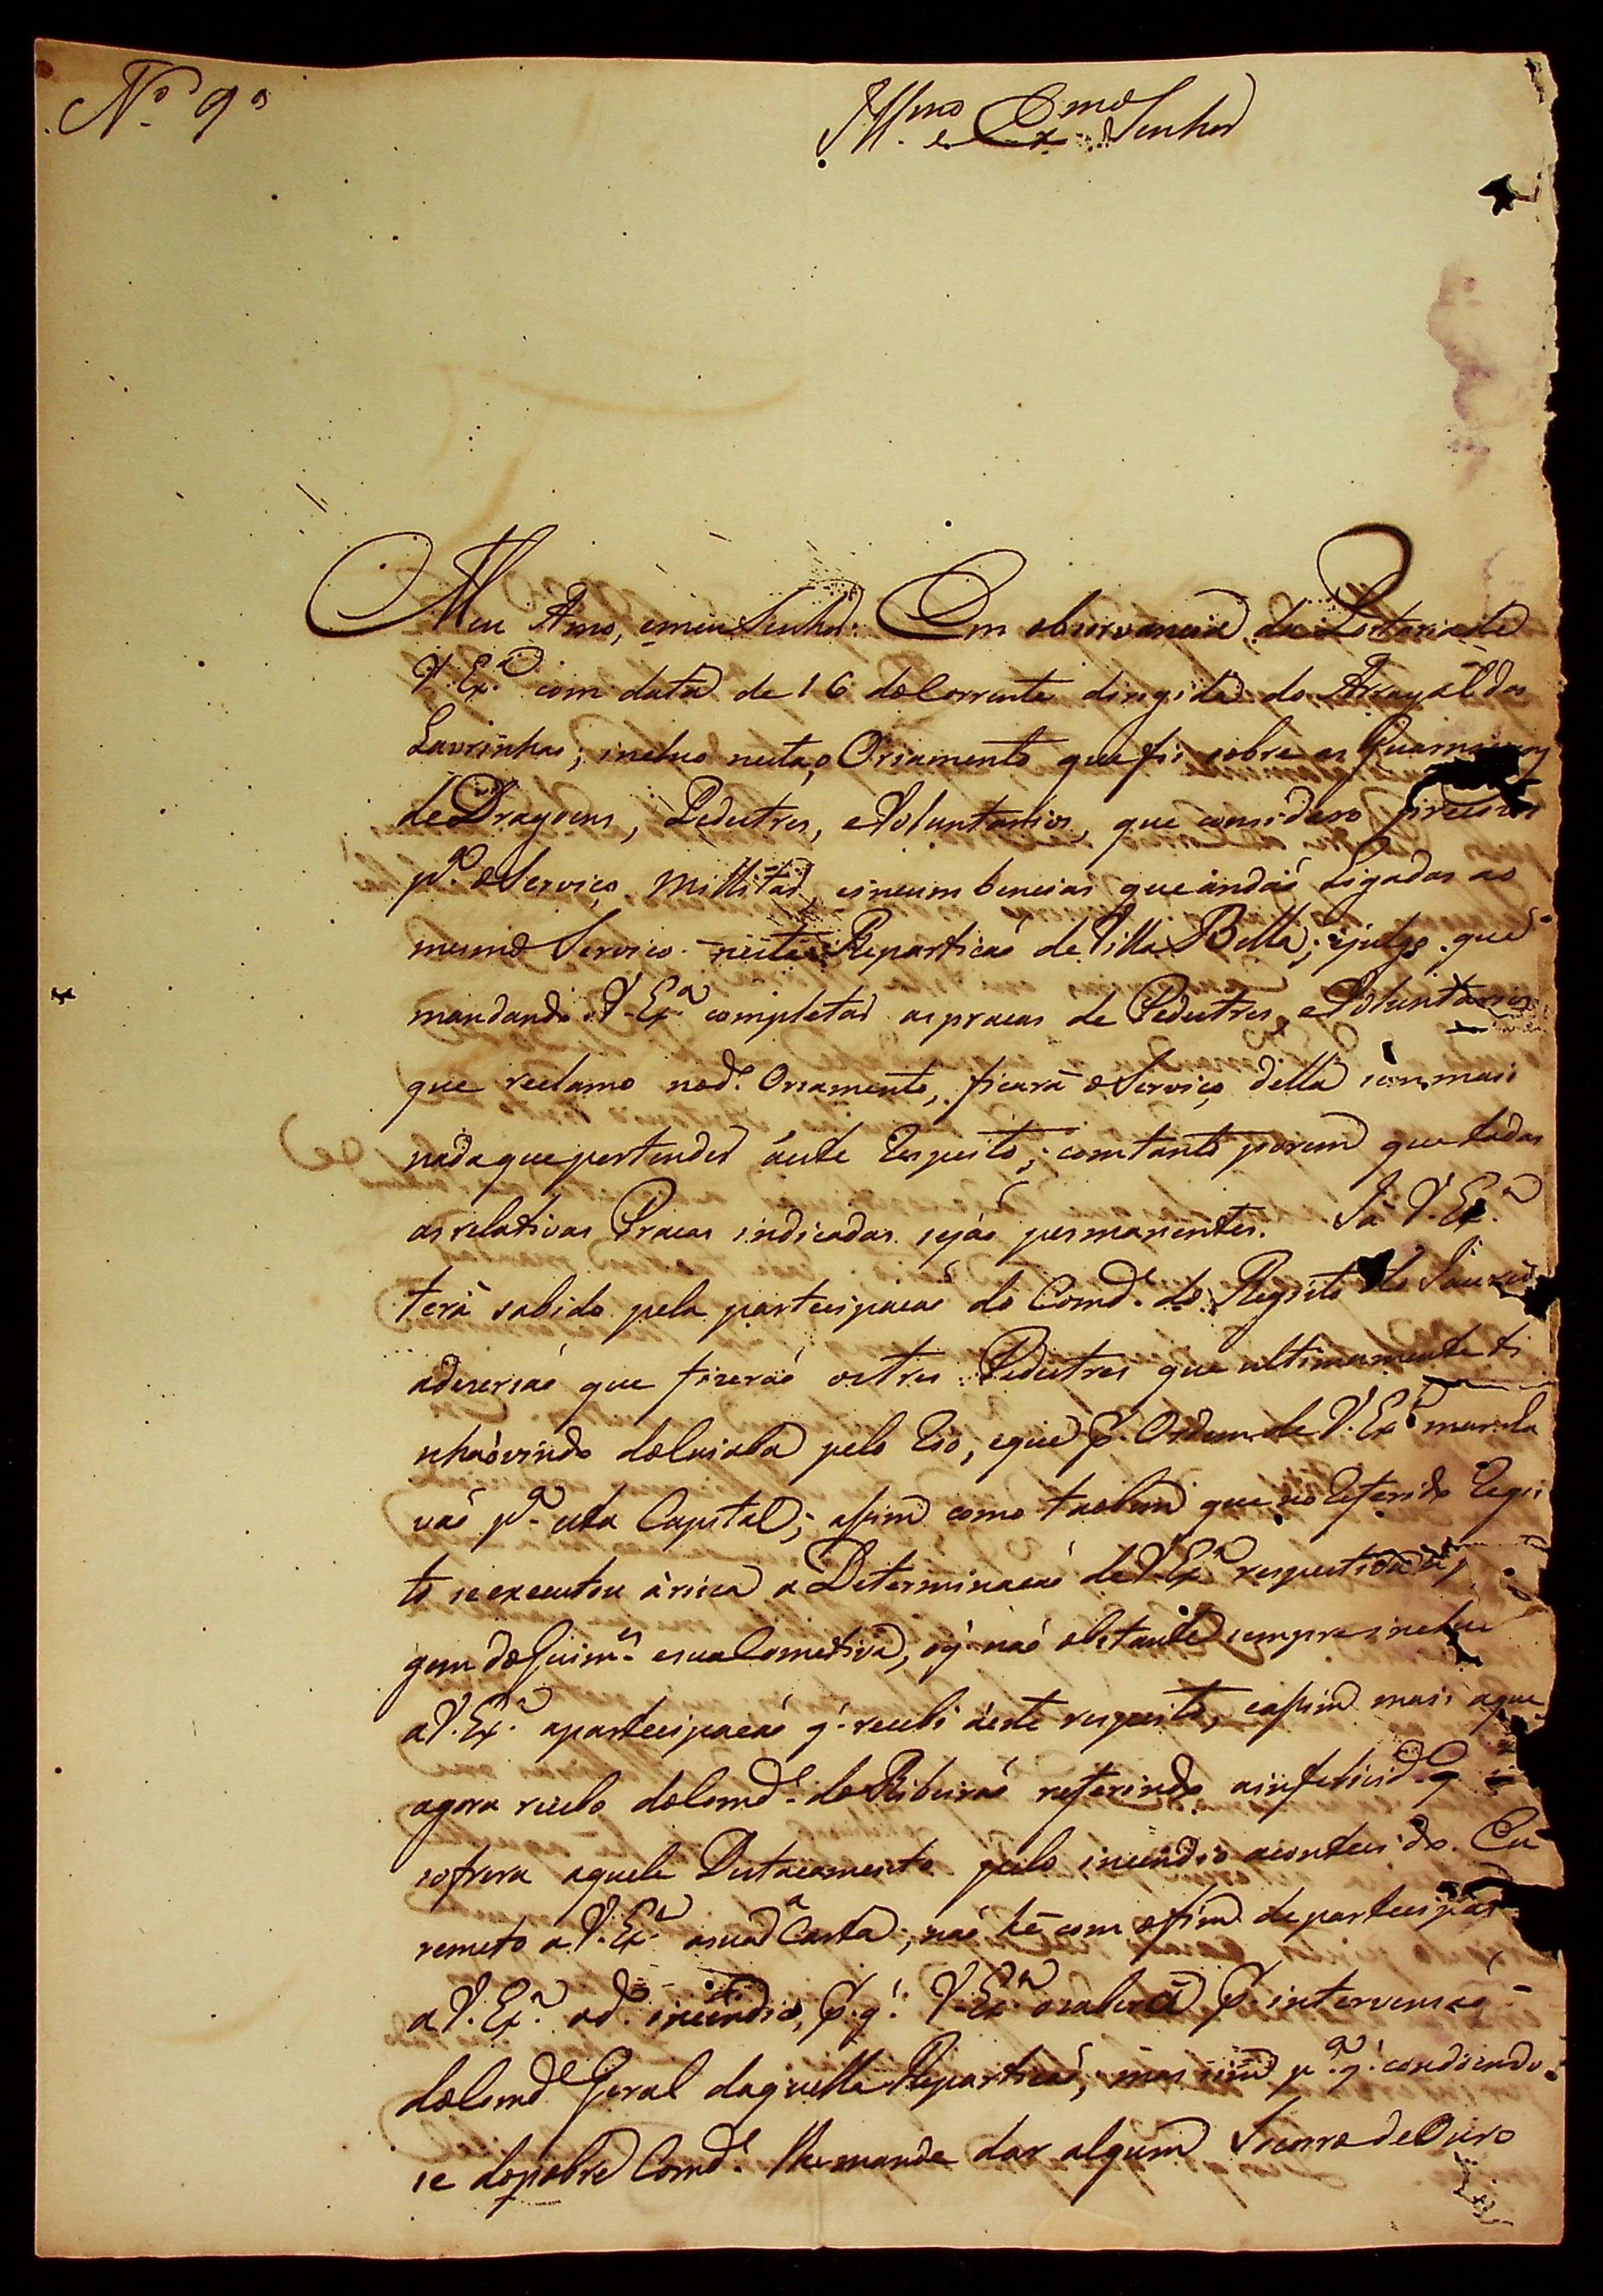 N.º 9º
Ill.mo e Ex.mo Senhor
Meu Amo, e meu Senhor: Em observancia da Portaria de
V. Ex.a com data de 16 do Corrente dirigida do Arrayal das
Lavrinhas; incluo nesta, o Orsamento que fis sobre as
de Dragoens, Pedestres, e Voluntarios, que considero precizas
p.a o Serviço Millitar, e incumbencias que andaõ Ligadas ao
mesmo Serviço nesta Repartiçaõ de Villa Bella; e julgo que
mandando V. Ex.a completar as praças de Pedestres, e Voluntarios
que reclamo no d.o Orsamento, ficará o Serviço della sem mais
nada que pertender á este Respeito; com tanto porem que todas
as relativas Praças indicadas sejaõ permanentes. Já V. Ex.a
terá sabido pela partecipaçaõ do Com.de do Registo do Jaurú
a dezersaõ que fizeraõ os tres Pedestres que ultimamente ti
nhaõ vindo do Cuiabá pelo Rio, e que p. Ordem de V. Ex.a manda
vaõ p.a esta Capital; assim como taobem que no Referido Regis
to se executou á risca a Determinaçaõ de V. Ex.a respectiva
gem do Guim.es e sua Cometiva, o q. naõ obstante sempre incluo
a V. Ex.a a partecipaçaõ q. recebi á este respeito, e assim mais a que
agora recebo do Com.de do Ribeiraõ referindo a infelicid.e q
sofrera aquele Destacamento pelo incendio acontecido. Eu
remeto a V. Ex.a a sua Carta; naõ hé com o fim de partecipar
a V. Ex.a o d.o incendio, p. q. V. Ex.a o saberá p. intervensaõ
do Com.de Geral daquella Repartiçaõ, mas sim p.a q. condoendo
se do pobre Com.de lhe mande dar algum Socorro de Oiro